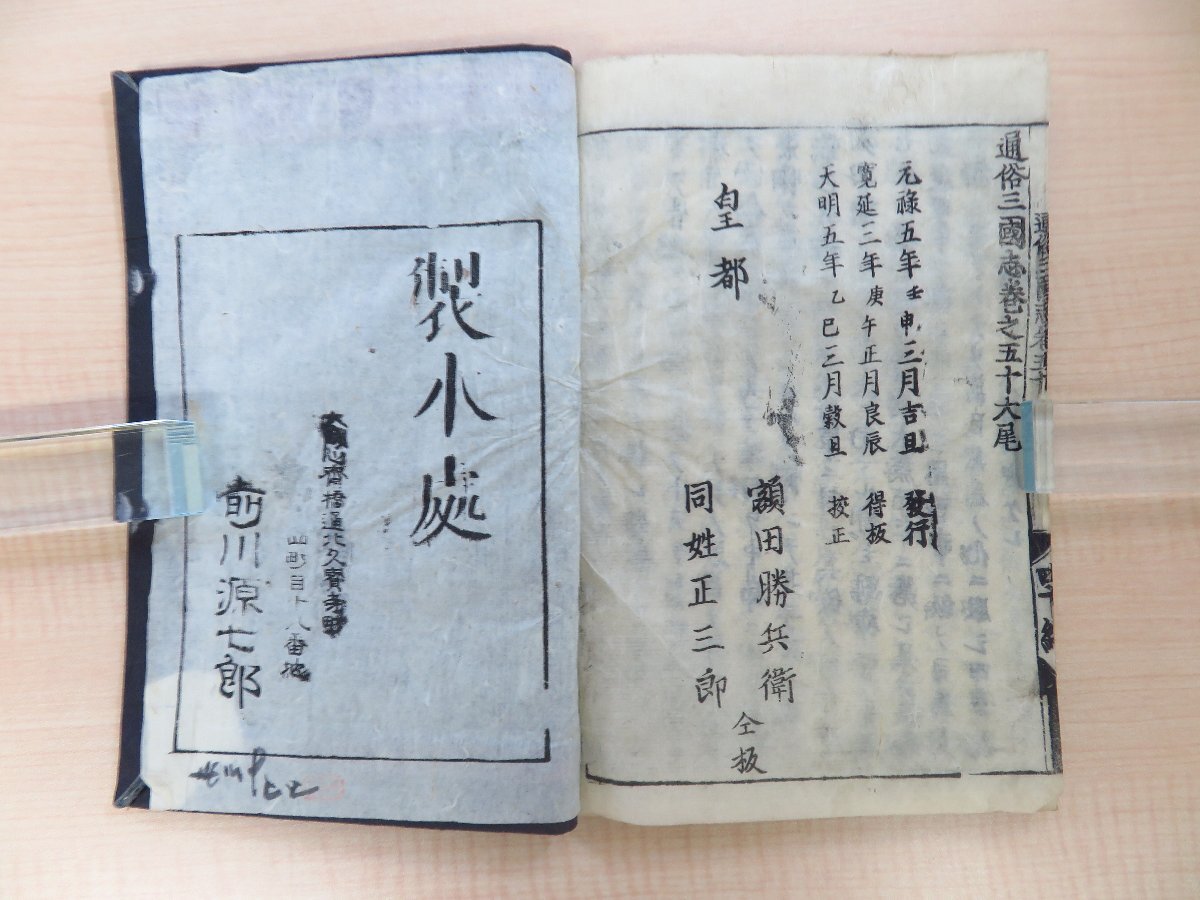 通俗三國志卷之五十六尾
元祿五年壬申三月吉旦 發行
寛延三年庚午正月良辰 得板
天明五年乙巳三月穀旦 挍正
皇都
額田勝兵衛
同姓正三郎
仝板
製本處
心齊橋通北久寳寺町
四町目十八番地
前川源七郎